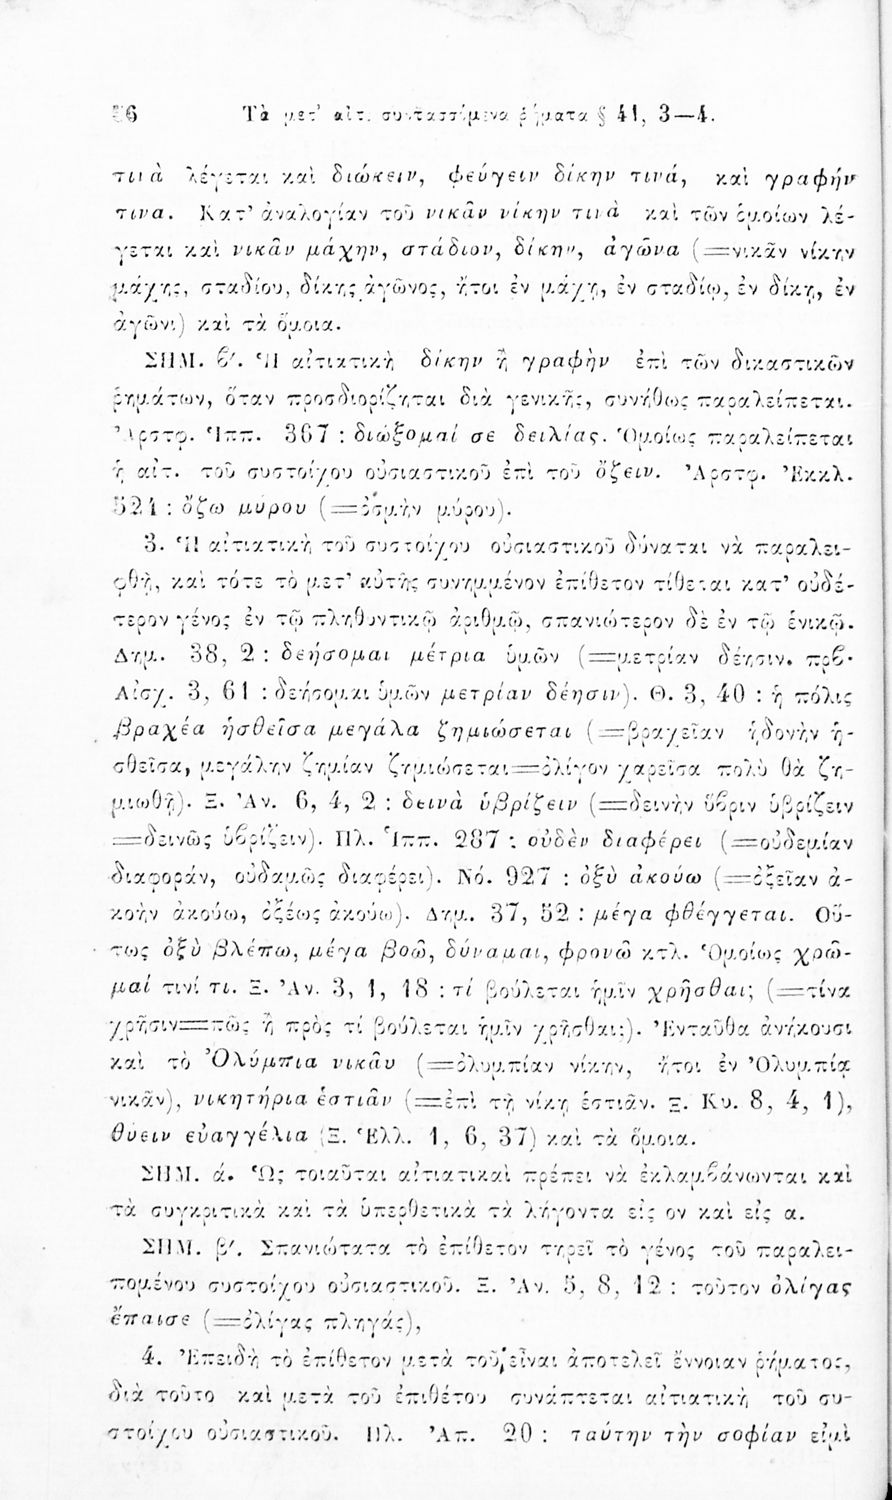 56 Τὰ μετ' αἰτ. συντασσόμενα ῥήματα § 41, 3—4.
τινὰ λέγεται καὶ διώκειν, φεύγειν δίκην τινά, καὶ γραφήν
τινα. Κατ' ἀναλογίαν τοῦ νικᾶν νίκην τινὰ καὶ τῶν ὁμοίων λέ-
γεται καὶ νικᾶν μάχην, στάδιον, δίκην, ἀγῶνα (=νικᾶν νίκην
μάχης, σταδίου, δίκης ἀγῶνος, ἤτοι ἐν μάχῃ, ἐν σταδίῳ, ἐν δίκῃ, ἐν
ἀγῶνι) καὶ τὰ ὅμοια.
ΣΗΜ. β'. Ἡ αἰτιατικὴ δίκην ἢ γραφὴν ἐπὶ τῶν δικαστικῶν
ῥημάτων, ὅταν προσδιορίζηται διὰ γενικῆς, συνήθως παραλείπεται.
Ἀρστφ. Ἱππ. 367 : διώξομαί σε δειλίας. Ὁμοίως παραλείπεται
ἡ αἰτ. τοῦ συστοίχου οὐσιαστικοῦ ἐπὶ τοῦ ὄζειν. Ἀρστφ. Ἐκκλ.
524 : ὄζω μύρου (=ὀσμὴν μύρου).
3. Ἡ αἰτιατικὴ τοῦ συστοίχου οὐσιαστικοῦ δύναται νὰ παραλει-
φθῇ, καὶ τότε τὸ μετ' αὐτῆς συνημμένον ἐπίθετον τίθεται κατ' οὐδέ-
τερον γένος ἐν τῷ πληθυντικῷ ἀριθμῷ, σπανιώτερον δὲ ἐν τῷ ἑνικῷ.
Δημ. 38, 2 : δεήσομαι μέτρια ὑμῶν (=μετρίαν δέησιν. πρβ.
Αἰσχ. 3, 61 : δεήσομαι ὑμῶν μετρίαν δέησιν). Θ. 3, 40 : ἡ πόλις
βραχέα ἡσθεῖσα μεγάλα ζημιώσεται (=βραχεῖαν ἡδονὴν ἡ-
σθεῖσα, μεγάλην ζημίαν ζημιώσεται=ὀλίγον χαρεῖσα πολὺ θὰ ζη-
μιωθῇ). Ξ. Ἀν. 6, 4, 2 : δεινὰ ὑβρίζειν (=δεινὴν ὕβριν ὑβρίζειν
=δεινῶς ὑβρίζειν). Πλ. Ἱππ. 287 : οὐδὲν διαφέρει (=οὐδεμίαν
διαφοράν, οὐδαμῶς διαφέρει). Νό. 927 : ὀξὺ ἀκούω (=ὀξεῖαν ἀ-
κοὴν ἀκούω, ὀξέως ἀκούω). Δημ. 37, 52 : μέγα φθέγγεται. Οὕ-
τως ὀξὺ βλέπω, μέγα βοῶ, δύναμαι, φρονῶ κτλ. Ὁμοίως χρῶ-
μαί τινί τι. Ξ. Ἀν. 3, 1, 18 : τί βούλεται ἡμῖν χρῆσθαι; (=τίνα
χρῆσιν=πῶς ἢ πρὸς τί βούλεται ἡμῖν χρῆσθαι;). Ἐνταῦθα ἀνήκουσι
καὶ τὸ Ὀλύμπια νικᾶν (=ὀλυμπίαν νίκην, ἤτοι ἐν Ὀλυμπίᾳ
νικᾶν), νικητήρια ἑστιᾶν (=ἐπὶ τῇ νίκῃ ἑστιᾶν. Ξ. Κυ. 8, 4, 1),
θύειν εὐαγγέλια (Ξ. Ἑλλ. 1, 6, 37) καὶ τὰ ὅμοια.
ΣΗΜ. ά. Ὡς τοιαῦται αἰτιατικαὶ πρέπει νὰ ἐκλαμβάνωνται καὶ
τὰ συγκριτικὰ καὶ τὰ ὑπερθετικὰ τὰ λήγοντα εἰς ον καὶ εἰς α.
ΣΗΜ. β'. Σπανιώτατα τὸ ἐπίθετον τηρεῖ τὸ γένος τοῦ παραλει-
πομένου συστοίχου οὐσιαστικοῦ. Ξ. Ἀν. 5, 8, 12 : τοῦτον ὀλίγας
ἔπαισε (=ὀλίγας πληγάς),
4. Ἐπειδὴ τὸ ἐπίθετον μετὰ τοῦ εἶναι ἀποτελεῖ ἔννοιαν ῥήματος,
διὰ τοῦτο καὶ μετὰ τοῦ ἐπιθέτου συνάπτεται αἰτιατικὴ τοῦ συ-
στοίχου οὐσιαστικοῦ. Πλ. Ἀπ. 20 : ταύτην τὴν σοφίαν εἰμὶ